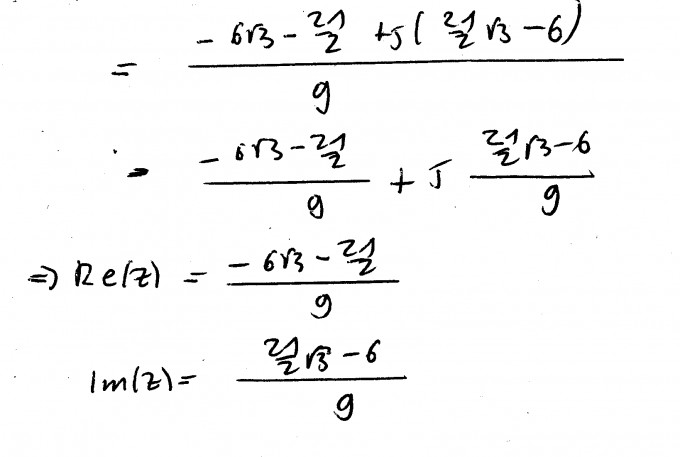 = (-6√3 - 21/2 + j(21/2 √3 - 6)) / 9
= (-6√3 - 21/2) / 9 + j (21/2 √3 - 6) / 9
⇒ Re(z) = (-6√3 - 21/2) / 9
Im(z) = (21/2 √3 - 6) / 9